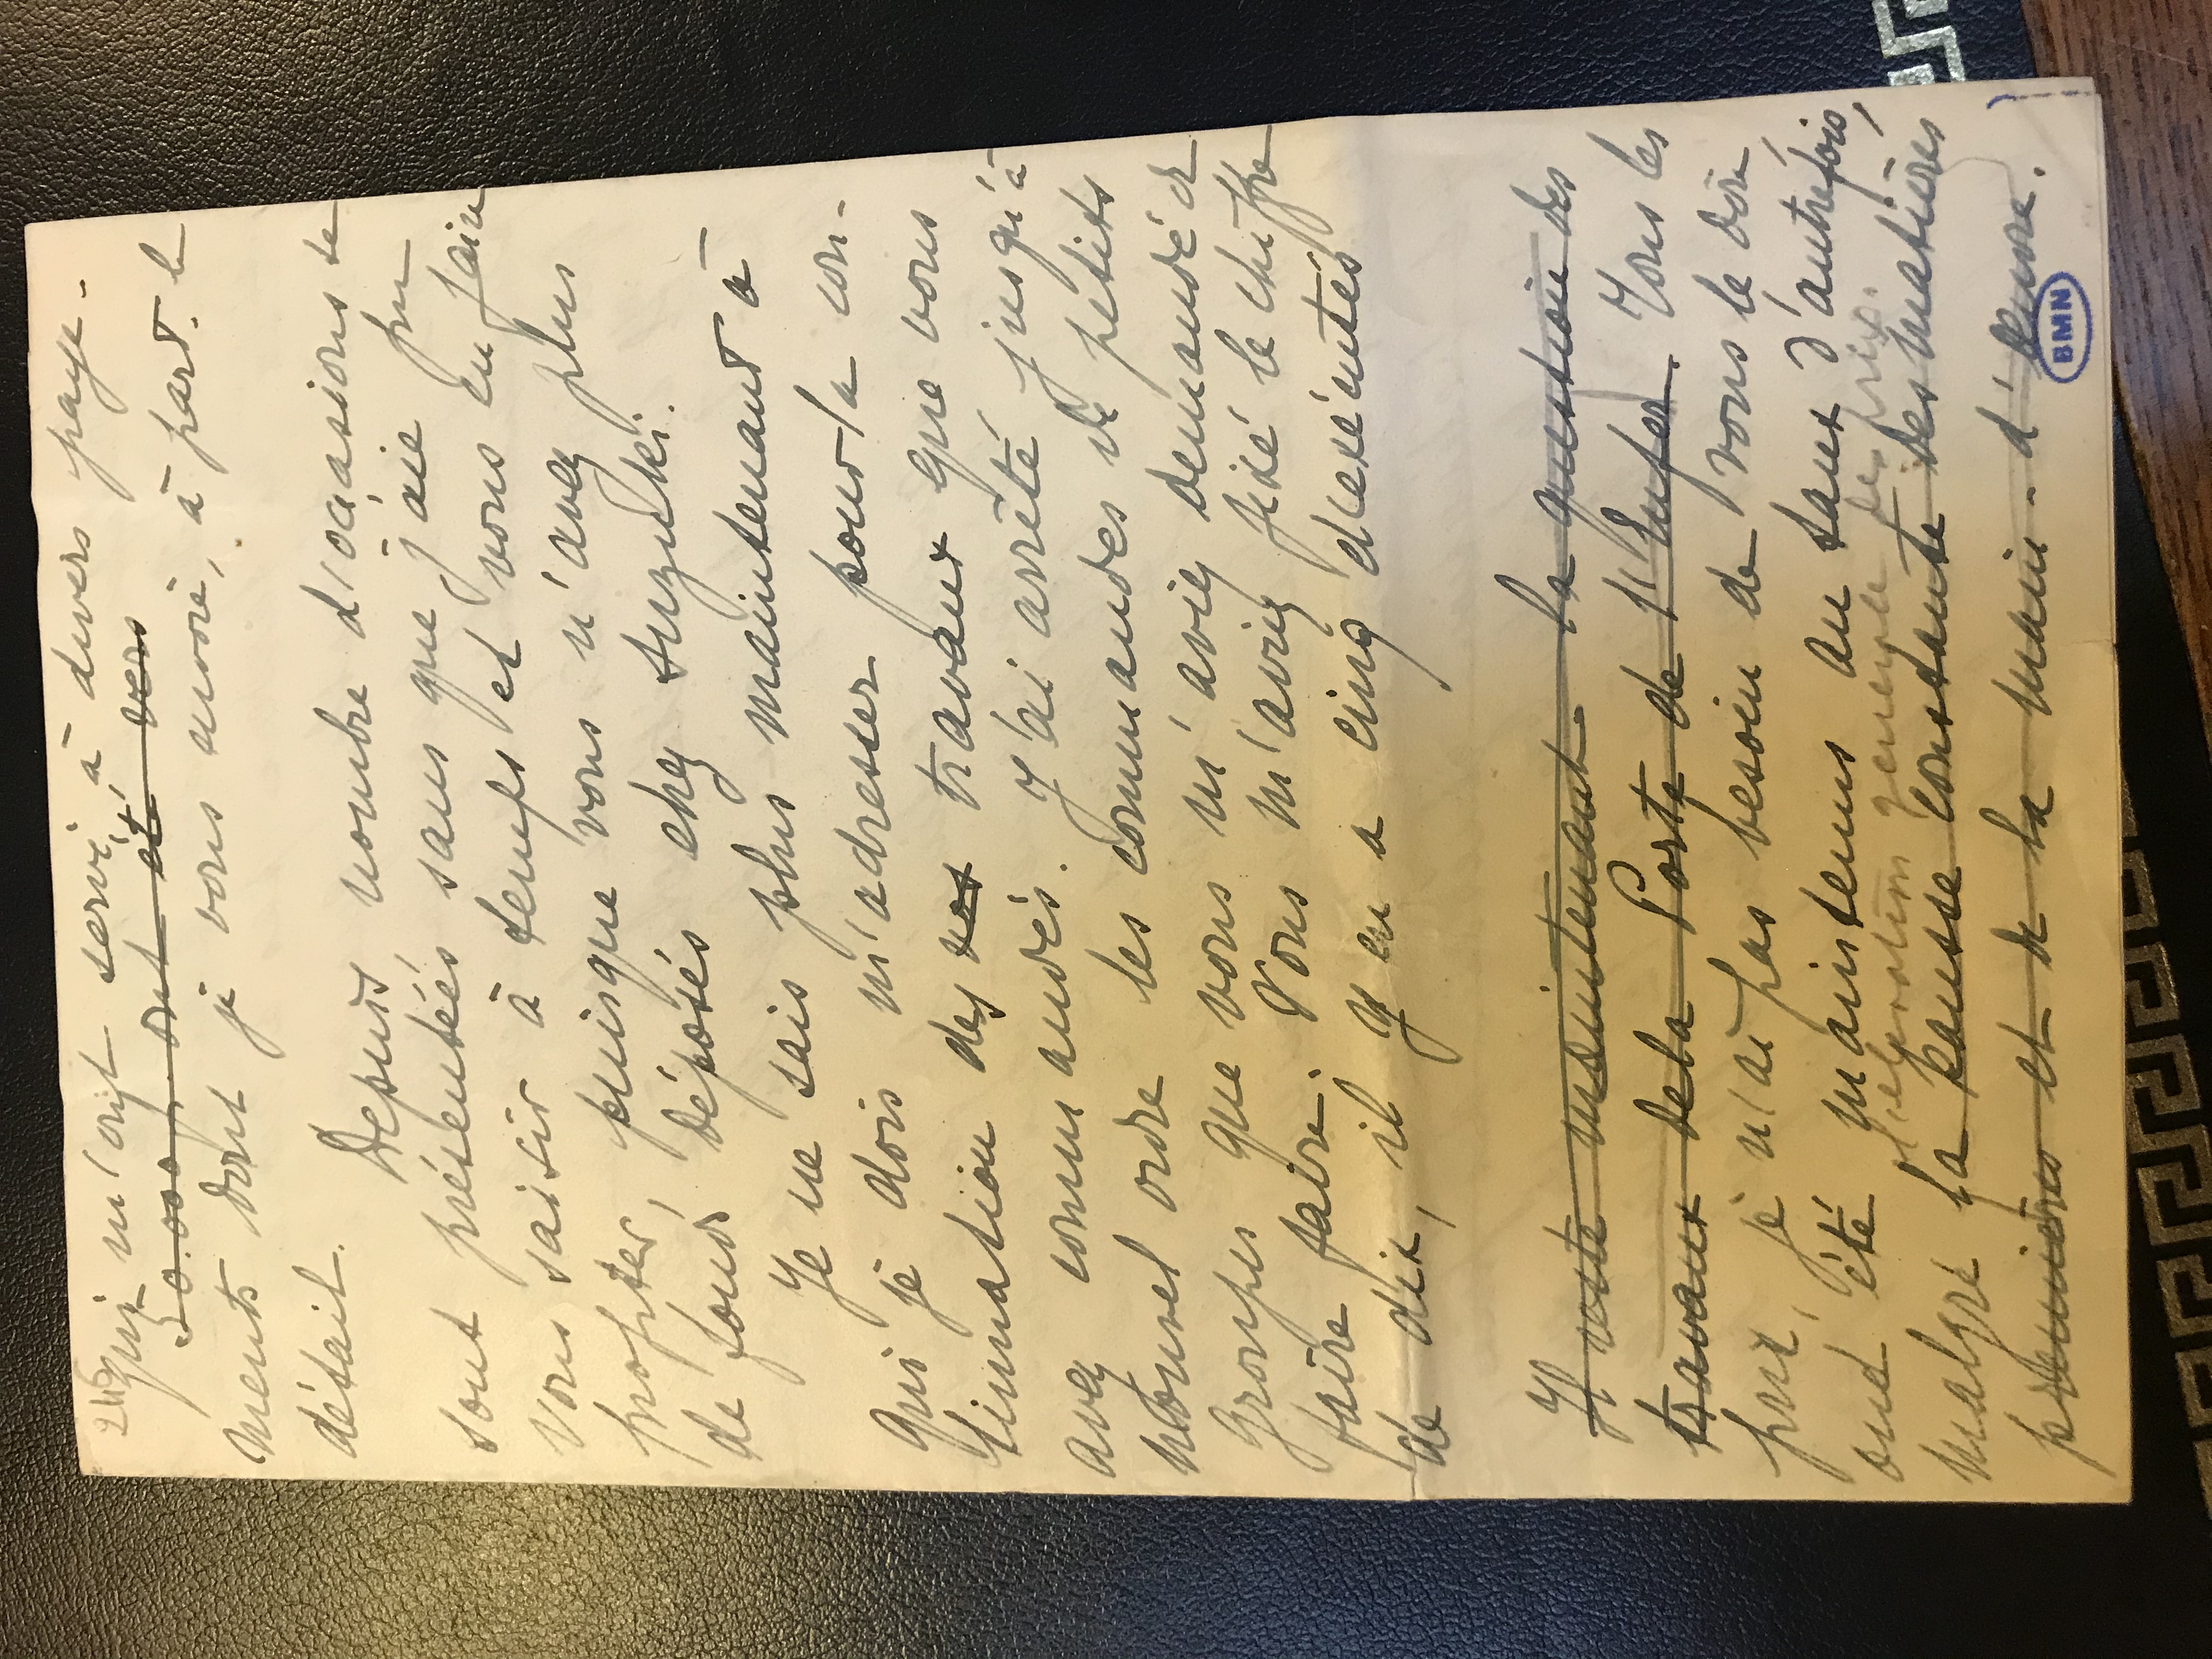 2
qui m'ont servi à divers paye-
50.000 f. ont été vers
ments dont je vous envoie, à part le
détail.
Depuis nombre d'occasions se
sont présentées sans que j'aie pu
vous saisir à temps et vous en faire
profiter, puisque vous n'avez plus
de fonds déposés chez Suzuki.
Je ne sais plus maintenant à
qui je dois m'adresser pour la con-
tinuation des tr travaux que vous
avez commandés. J'ai arrêté jusqu'à
nouvel ordre les commandes de petits
groupes que vous m'aviez demandé de
faire faire. Vous m'aviez fixé le chiffre
de dix, il y en a cinq d'exécutés
Il reste maintenant la question des
travaux de la Porte de l'Enfer. Vous les
je n'ai pas besoin de vous le dire,
ont été maintenus au taux d'autrefois,
l'élévation générale des prix.
malgré la hausse constante des matières
premières et de la main-d'œuvre.
BMN